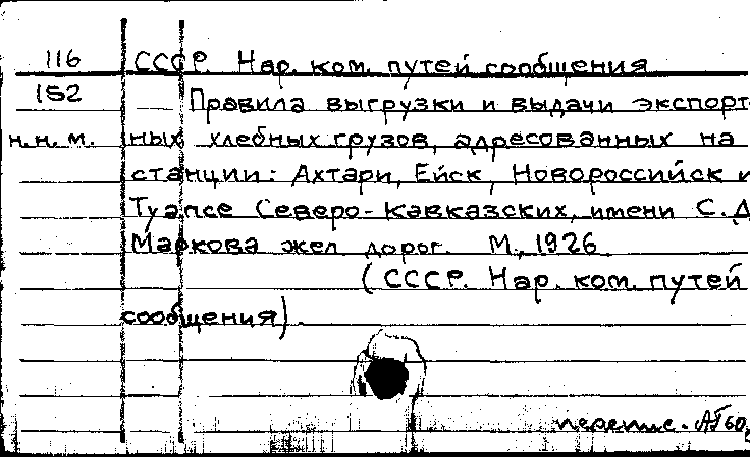 116 СССР. Нар. ком. путей сообщения
152 Правила выгрузки и выдачи экспорт-
н.н.м. ных хлебных грузов, адресованных на
станции: Ахтари, Ейск, Новороссийск и
Туапсе Северо-Кавказских, имени С.Д.
Маркова жел дорог. М., 1926.
(СССР. Нар. ком. путей
сообщения).